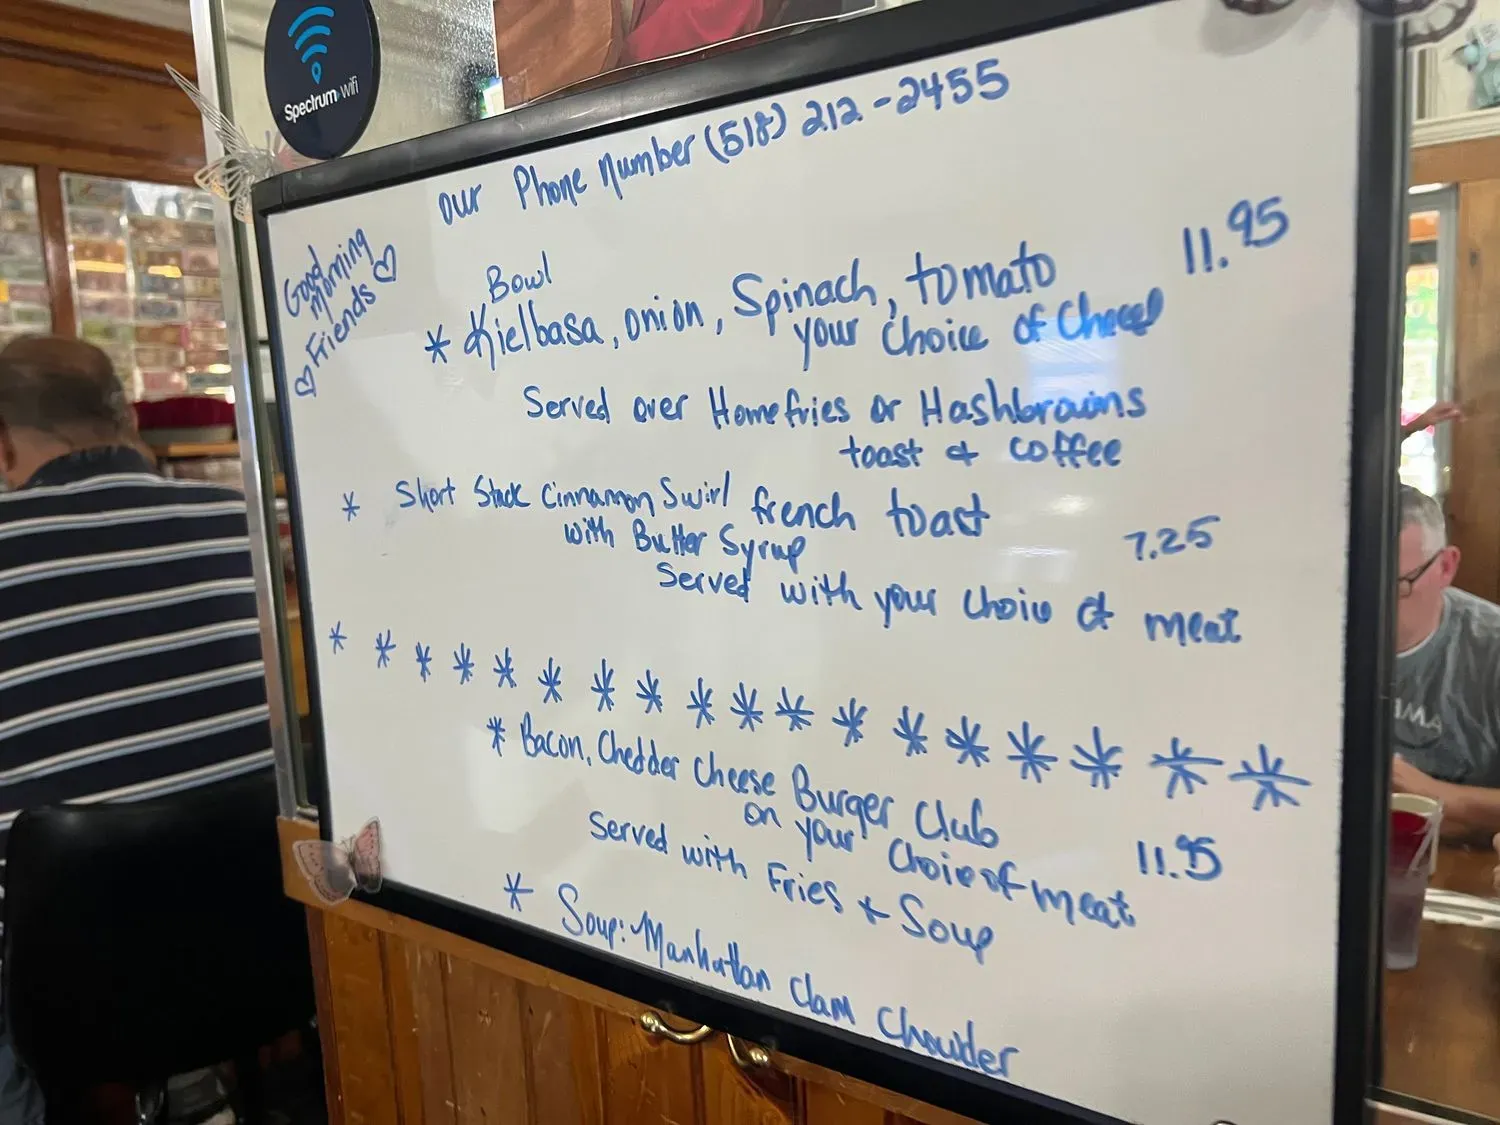 Spectrum wifi
our Phone number (518) 212-2455
Good
Morning
Friends
Bowl
* Kielbasa, onion, Spinach, tomato 11.95
your choice of
Served over Homefries or Hashbrowns
toast & coffee
* Short Stack Cinnamon Swirl french toast
with Butter Syrup 7.25
Served with your choice of meat
* * * * * * * * * * * * * * * * * *
* Bacon, Chedder Cheese Burger Club
on your choice of meat 11.95
Served with Fries & Soup
* Soup: Manhattan Clam Chowder